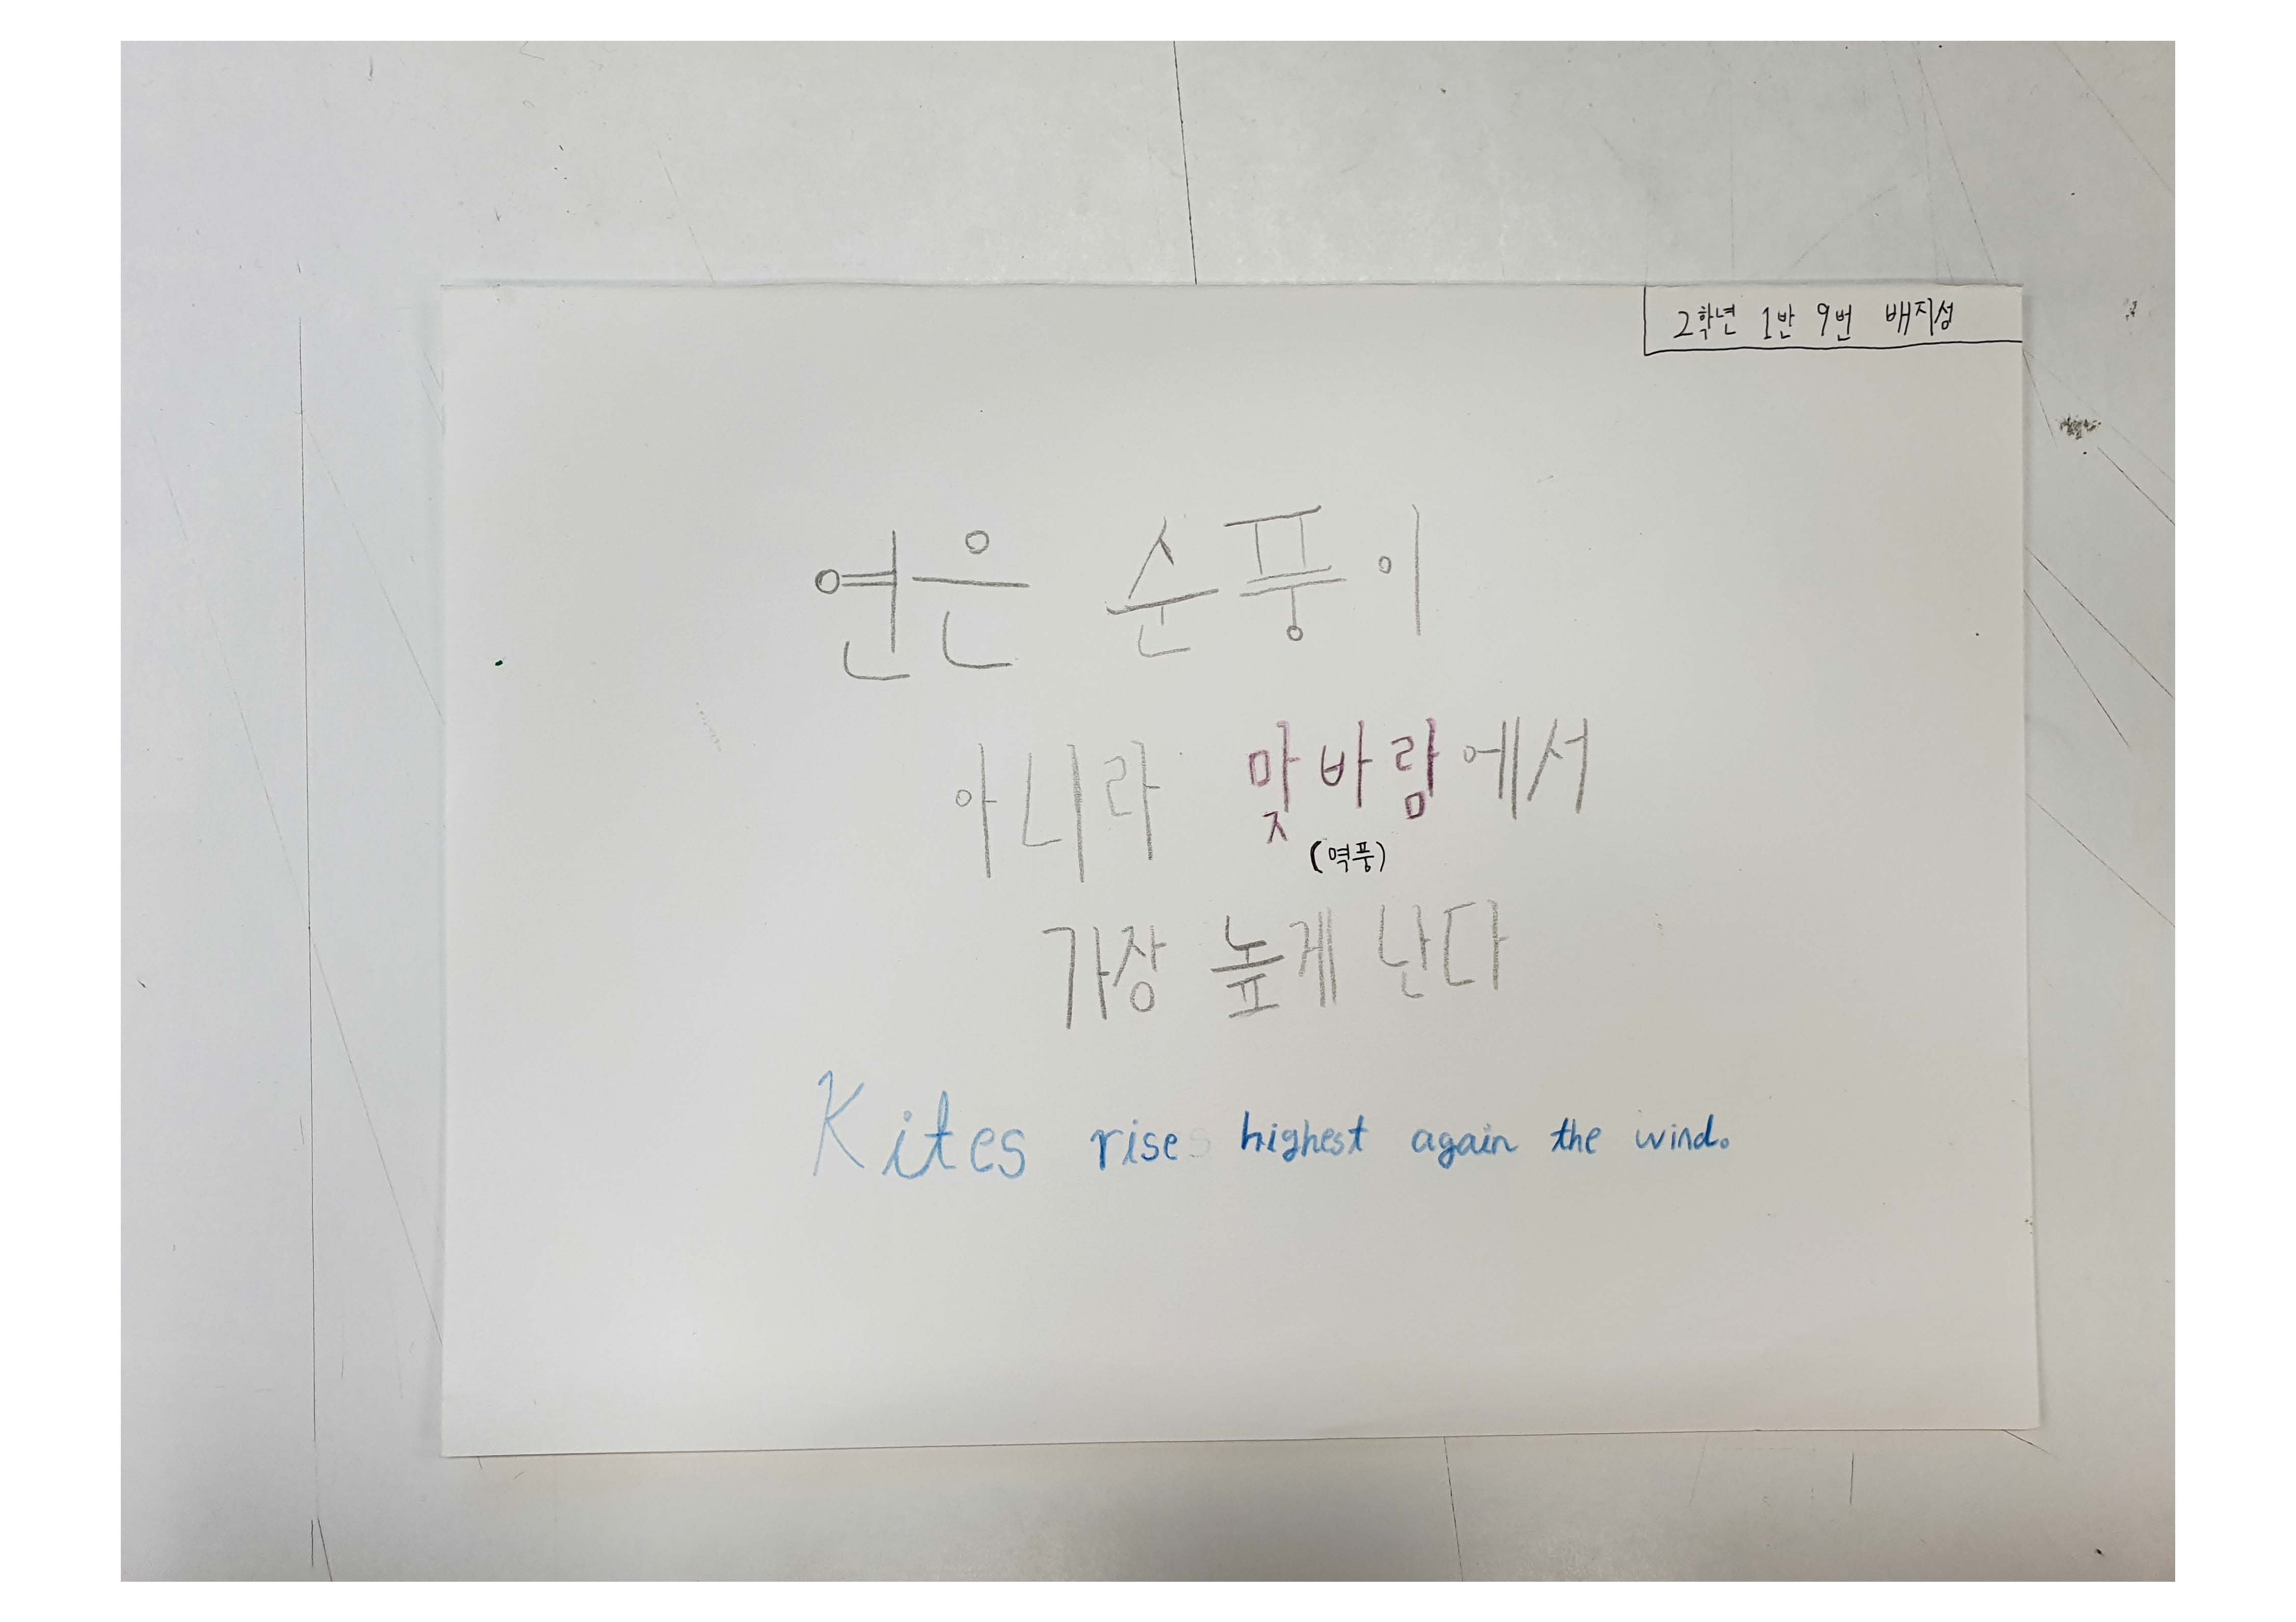 2학년 1반 9번 배지성
연은 순풍이
아니라 맞바람에서
(역풍)
가장 높게 난다
Kites rise highest again the wind.